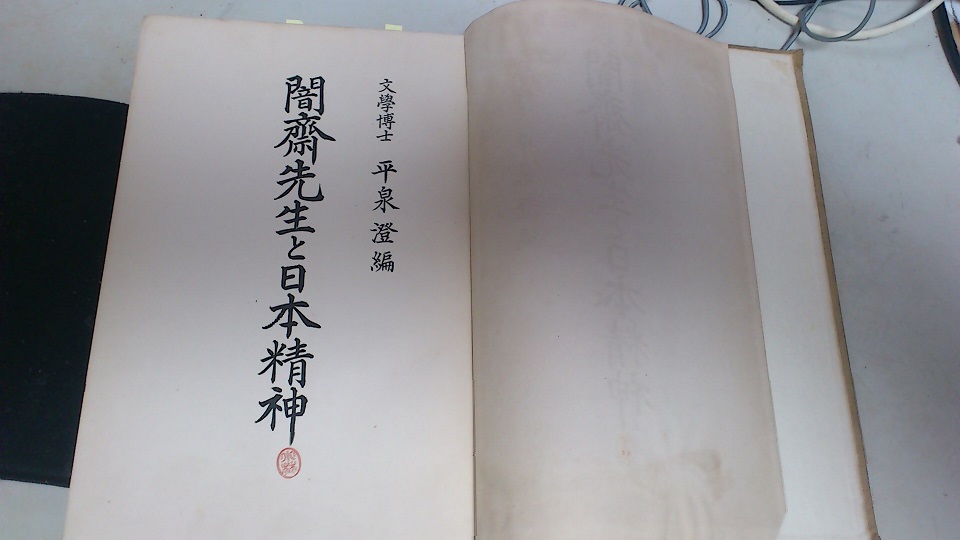 文學博士 平泉澄編
闇齋先生と日本精神